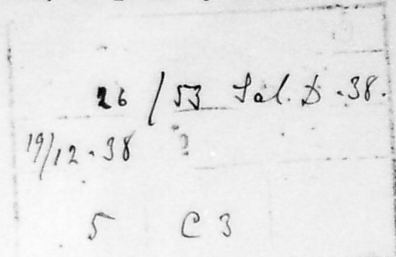 26 / 53 Sal. D. 38.
19/12. 38 ?
5 C 3